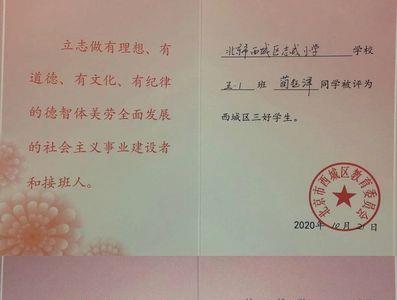 立志做有理想、有
道德、有文化、有纪律
的德智体美劳全面发展
的社会主义事业建设者
和接班人。
北京市西城区志成小学 学校
班 同学被评为
西城区三好学生。
北京市西城区教育委员会
2020年10月21日